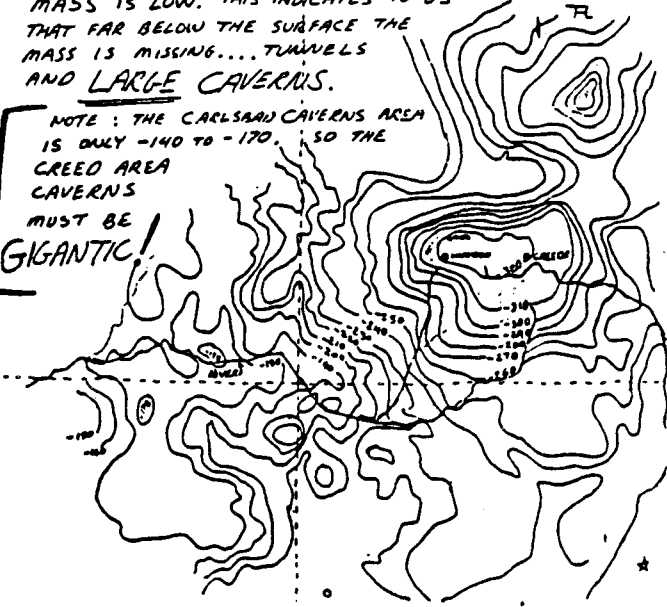 MASS IS LOW. THIS INDICATES TO US
THAT FAR BELOW THE SURFACE THE
MASS IS MISSING.... TUNNELS
AND LARGE CAVERNS.
NOTE : THE CARLSBAD CAVERNS AREA
IS ONLY -140 TO -170. SO THE
CREED AREA
CAVERNS
MUST BE
GIGANTIC!
-250
-240
-230
-220
-210
-200
-190
-300
-310
-300
-290
-280
-270
-260
-190
-150